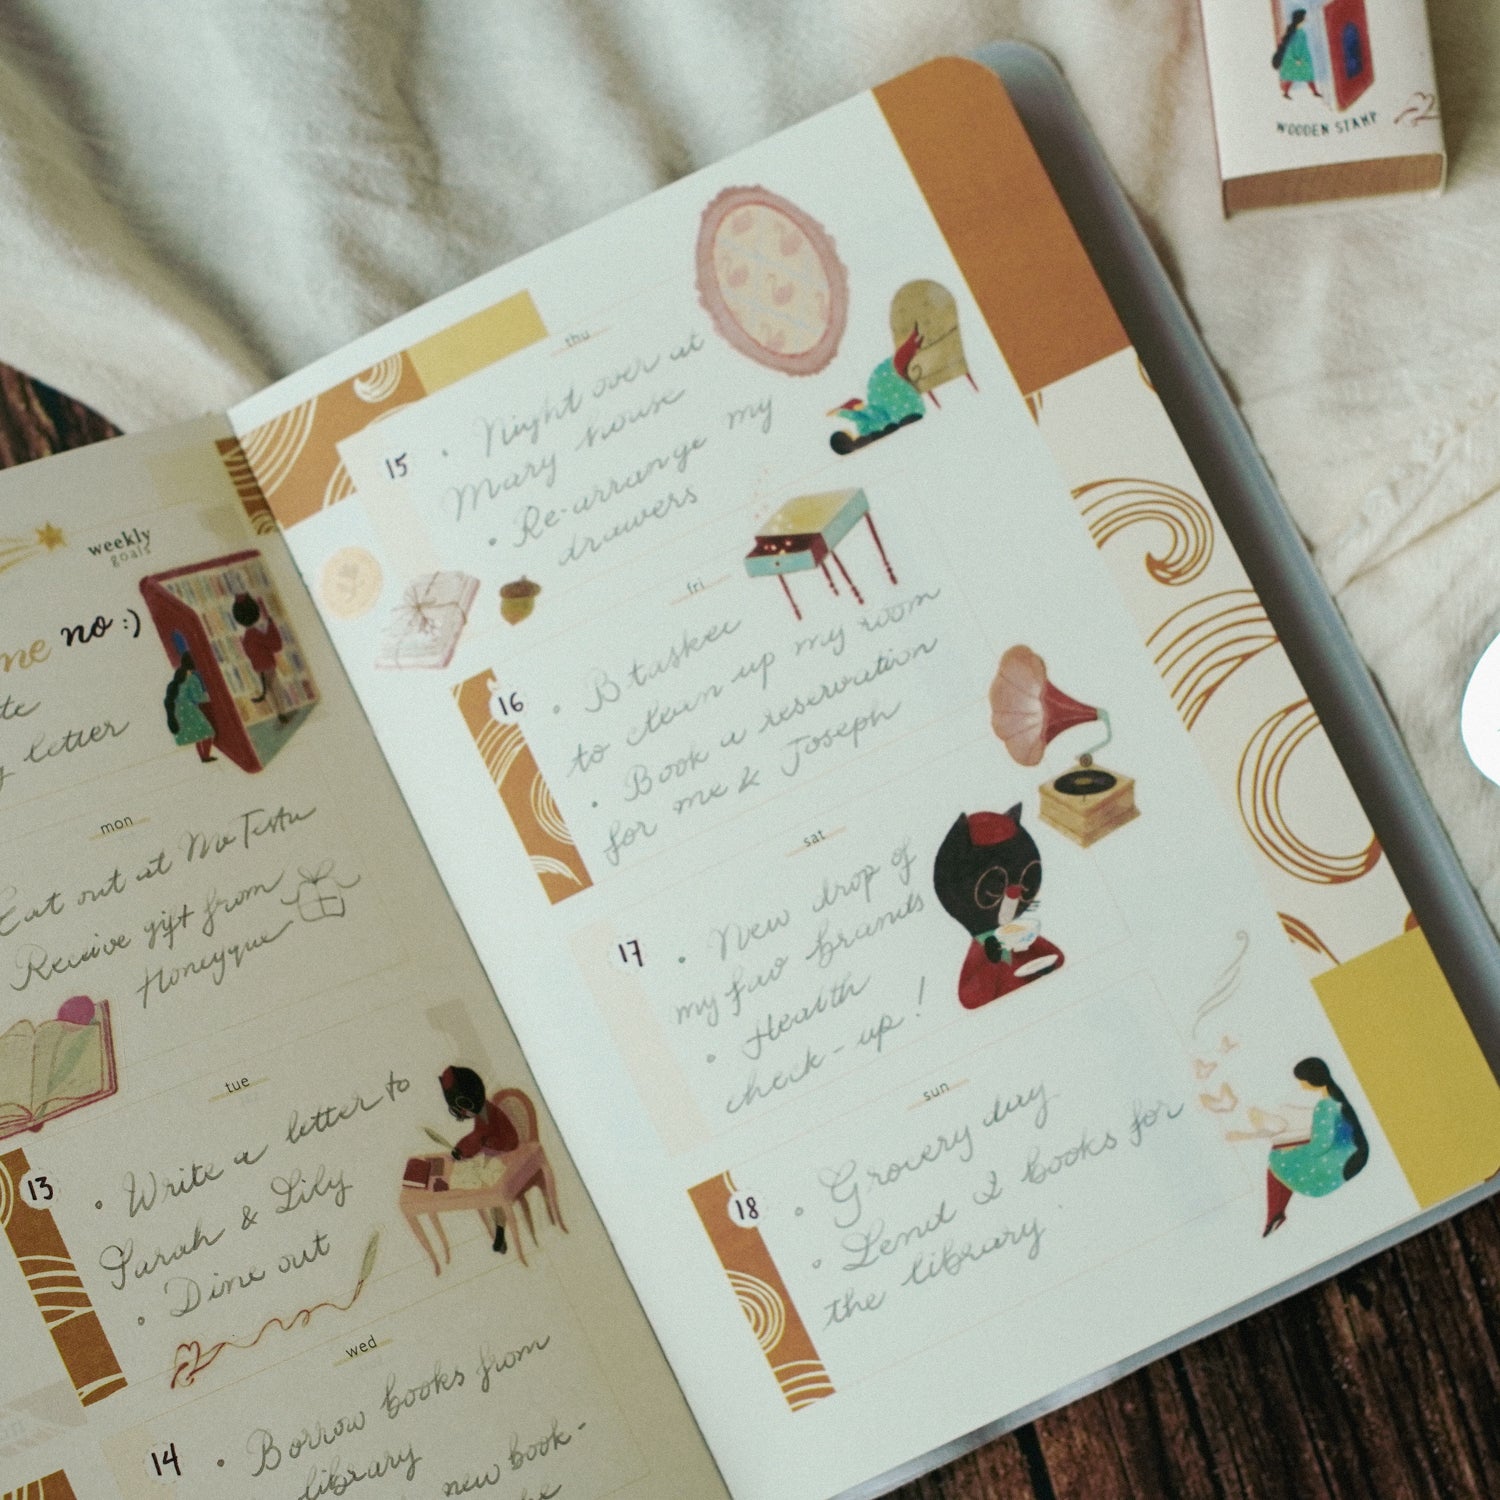 WOODEN STAMP
weekly
goals
me no :)
letter
mon
Eat out at Mo Testu
Receive gift from
Honeyque
tue
13
• Write a letter to
Sarah & Lily
• Dine out
wed
14
• Borrow books from
library
new book-
thu
15
• Night over at
Mary house
• Re-arrange my
drawers
fri
16
• B tasker
to clean up my room
• Book a reservation
for me & Joseph
sat
17
• New drop of
my fav brands
• Health
check-up!
sun
18
• Grocery day
• Lend 2 books for
the library